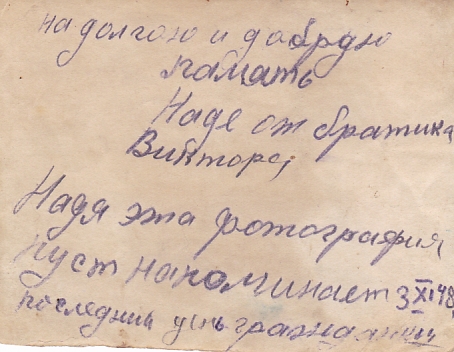 на долгою и добрую
память
Наде от братика
Виктора,
Надя эта фотография
пуст напоминает 3 XI 48
последний день граждански